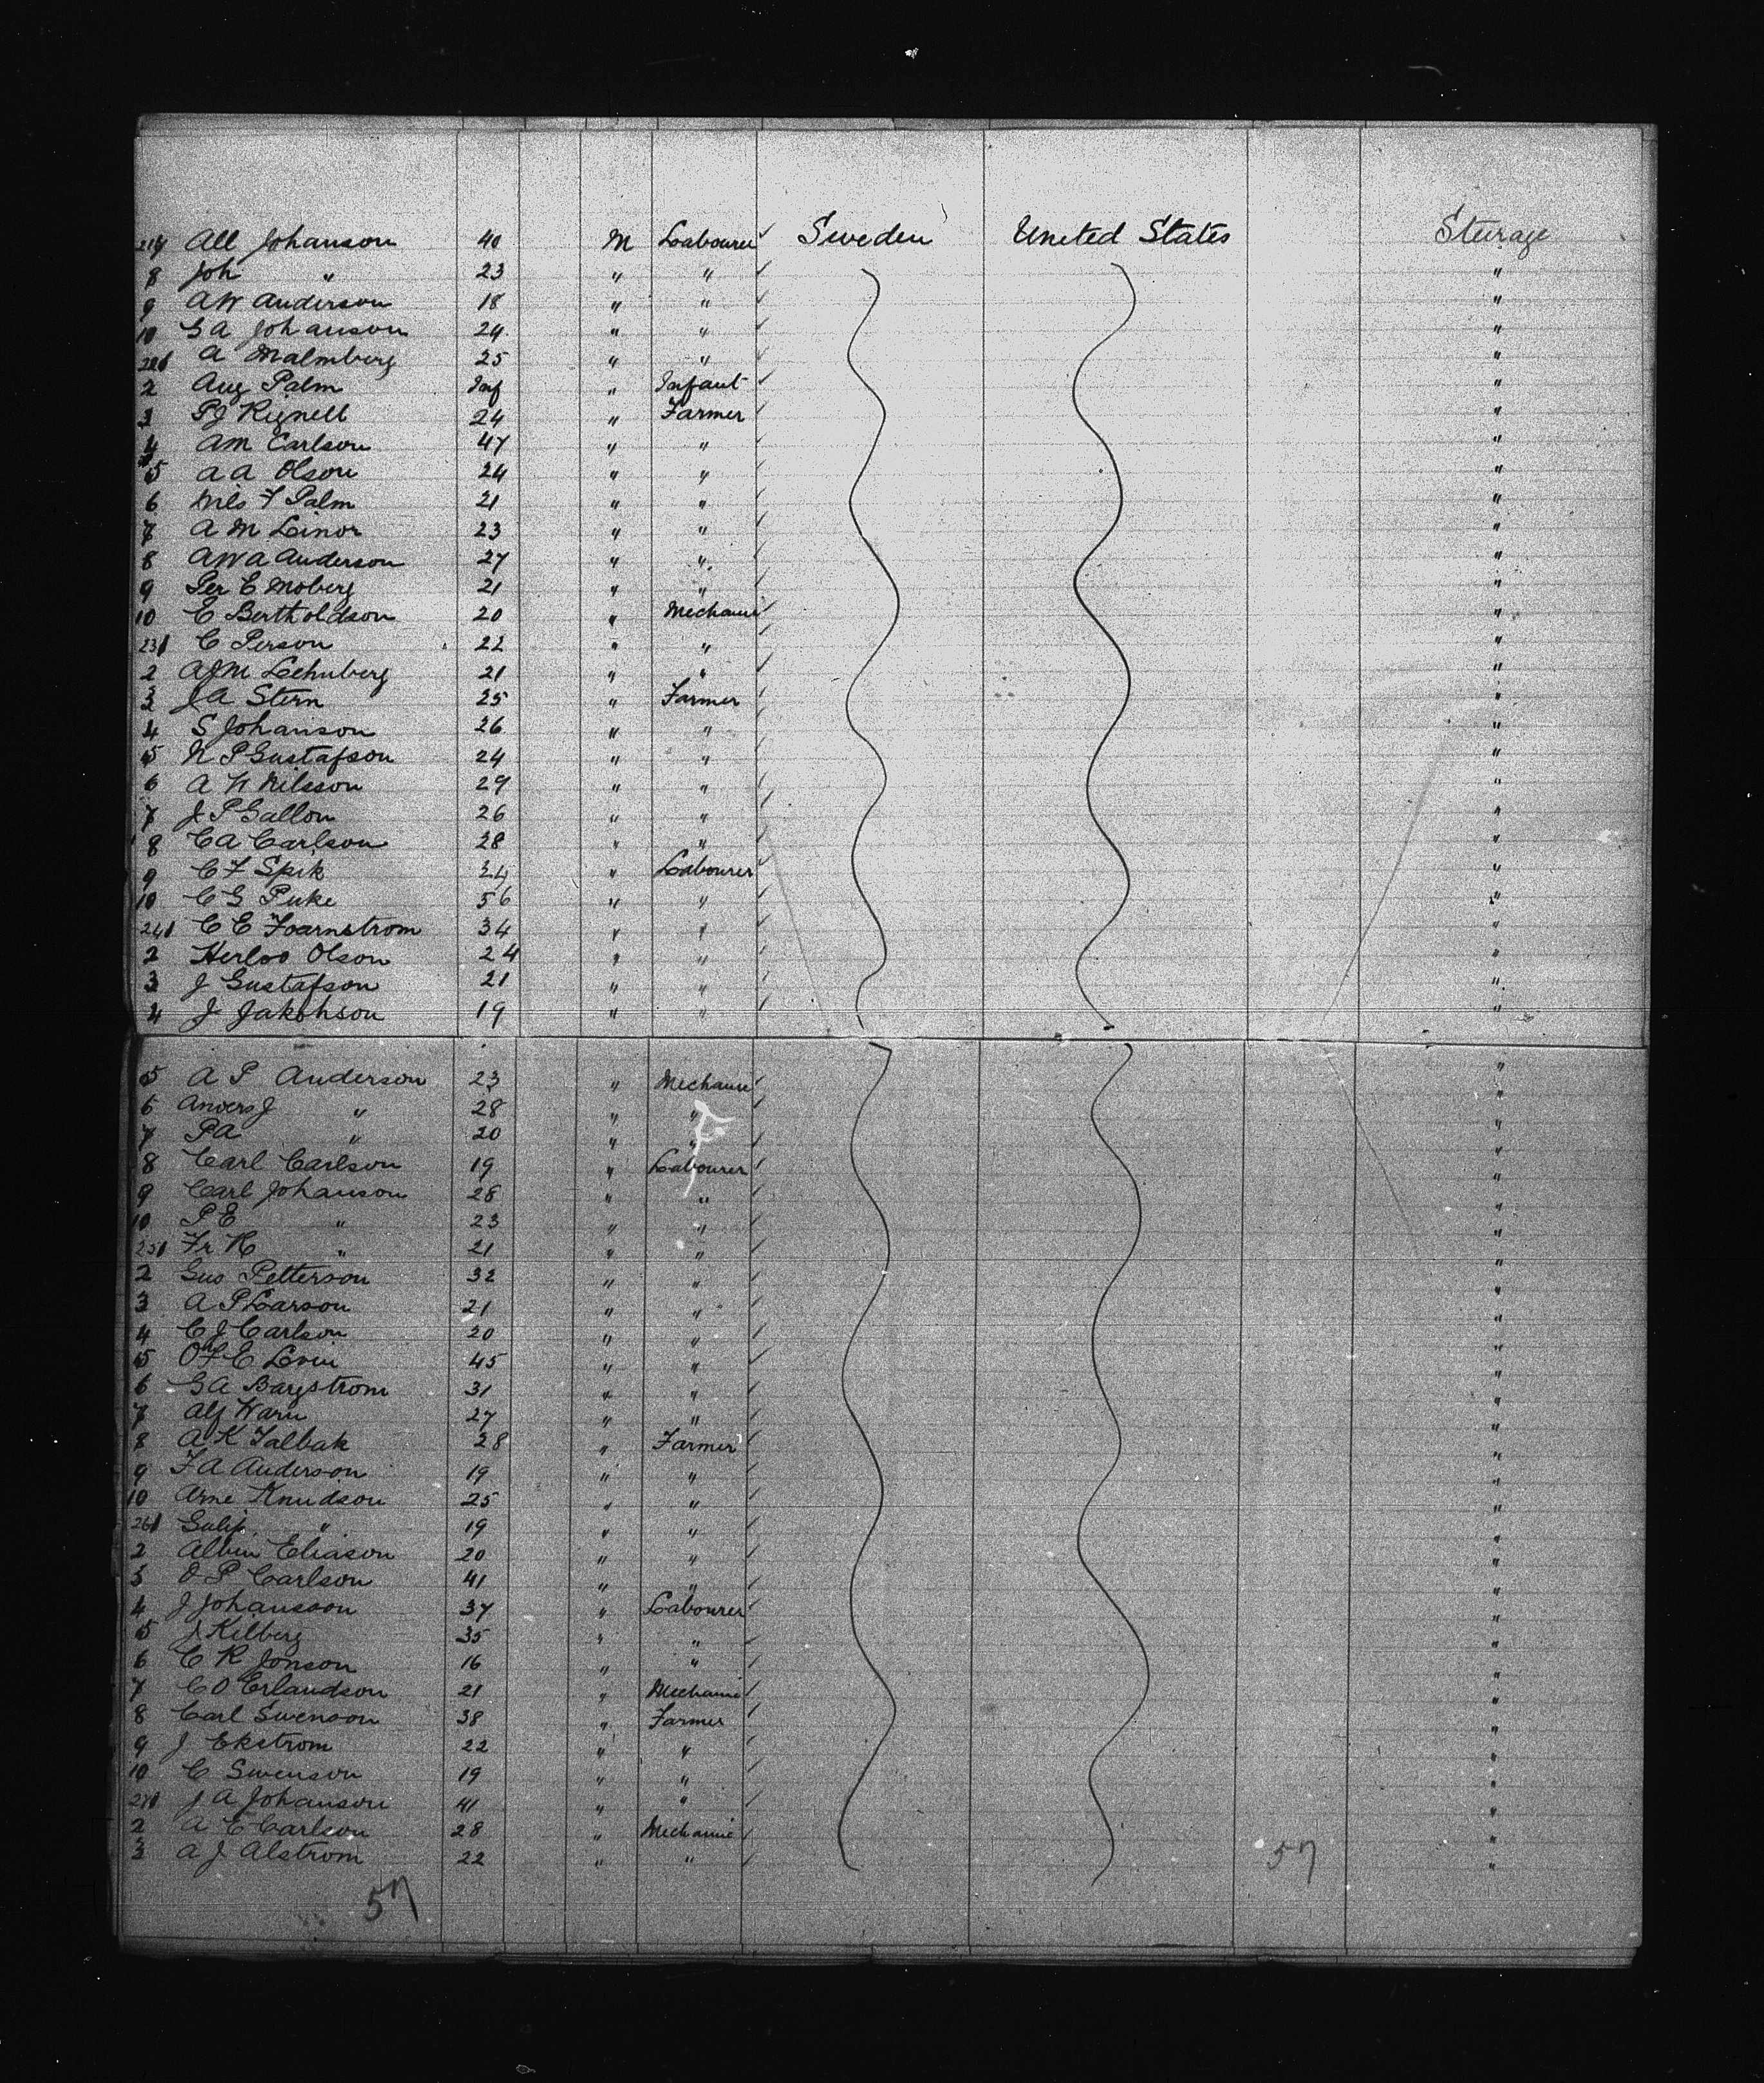 217 All Johanson 40 M Labourer Sweden United States Steerage
8 Joh " 23 " " "
9 AW Anderson 18 " " "
10 G A Johanson 24 " " "
221 A Malmberg 25 " " "
2 Aug Palm Inf " Infant "
3 PJ Rignell 24 " Farmer "
4 AM Carlson 47 " " "
5 A A Olson 24 " " "
6 Nils F Palm 21 " " "
7 A M Linor 23 " " "
8 AWA Anderson 27 " " "
9 Per E Moberg 21 " " "
10 C Bertholdson 20 " Mechanic "
231 C Person 22 " " "
2 AJM Lehnberg 21 " " "
3 JA Stern 25 " Farmer "
4 S Johanson 26 " " "
5 N P Gustafson 24 " " "
6 A W Nilsson 29 " " "
7 J P Gallon 26 " " "
8 CA Carlson 28 " " "
9 C F Spik 34 " Labourer "
10 C G Puke 56 " " "
241 C E Foarnstrom 34 " " "
2 Olson 24 " " "
3 J Gustafson 21 " " "
4 J Jakobson 19 " " "
5 A P Anderson 23 " Mechanic "
6 Anders J " 28 " " "
7 PA " 20 " " "
8 Carl Carlson 19 " Labourer "
9 Carl Johanson 28 " " "
10 P E " 23 " " "
251 Fr K " 21 " " "
2 Gus Petterson 32 " " "
3 A P Larson 21 " " "
4 C J Carlson 20 " " "
5 Levin 45 " " "
6 GA Bargstrom 31 " " "
7 Alf Warn 27 " " "
8 A K Talbak 28 " Farmer "
9 FA Anderson 19 " " "
10 Arne Knudson 25 " " "
261 " 19 " " "
2 Albin Eliason 20 " " "
3 O P Carlson 41 " " "
4 J Johansson 37 " Labourer "
5 J Kelberg 35 " " "
6 C R Jonson 16 " " "
7 CO Erlandson 21 " Mechanic "
8 Carl Swenson 38 " Farmer "
9 J Ekstrom 22 " " "
10 C Swenson 19 " " "
271 J A Johanson 41 " " "
2 A E Carlson 28 " Mechanic "
3 A J Alstrom 22 " " "
57 57